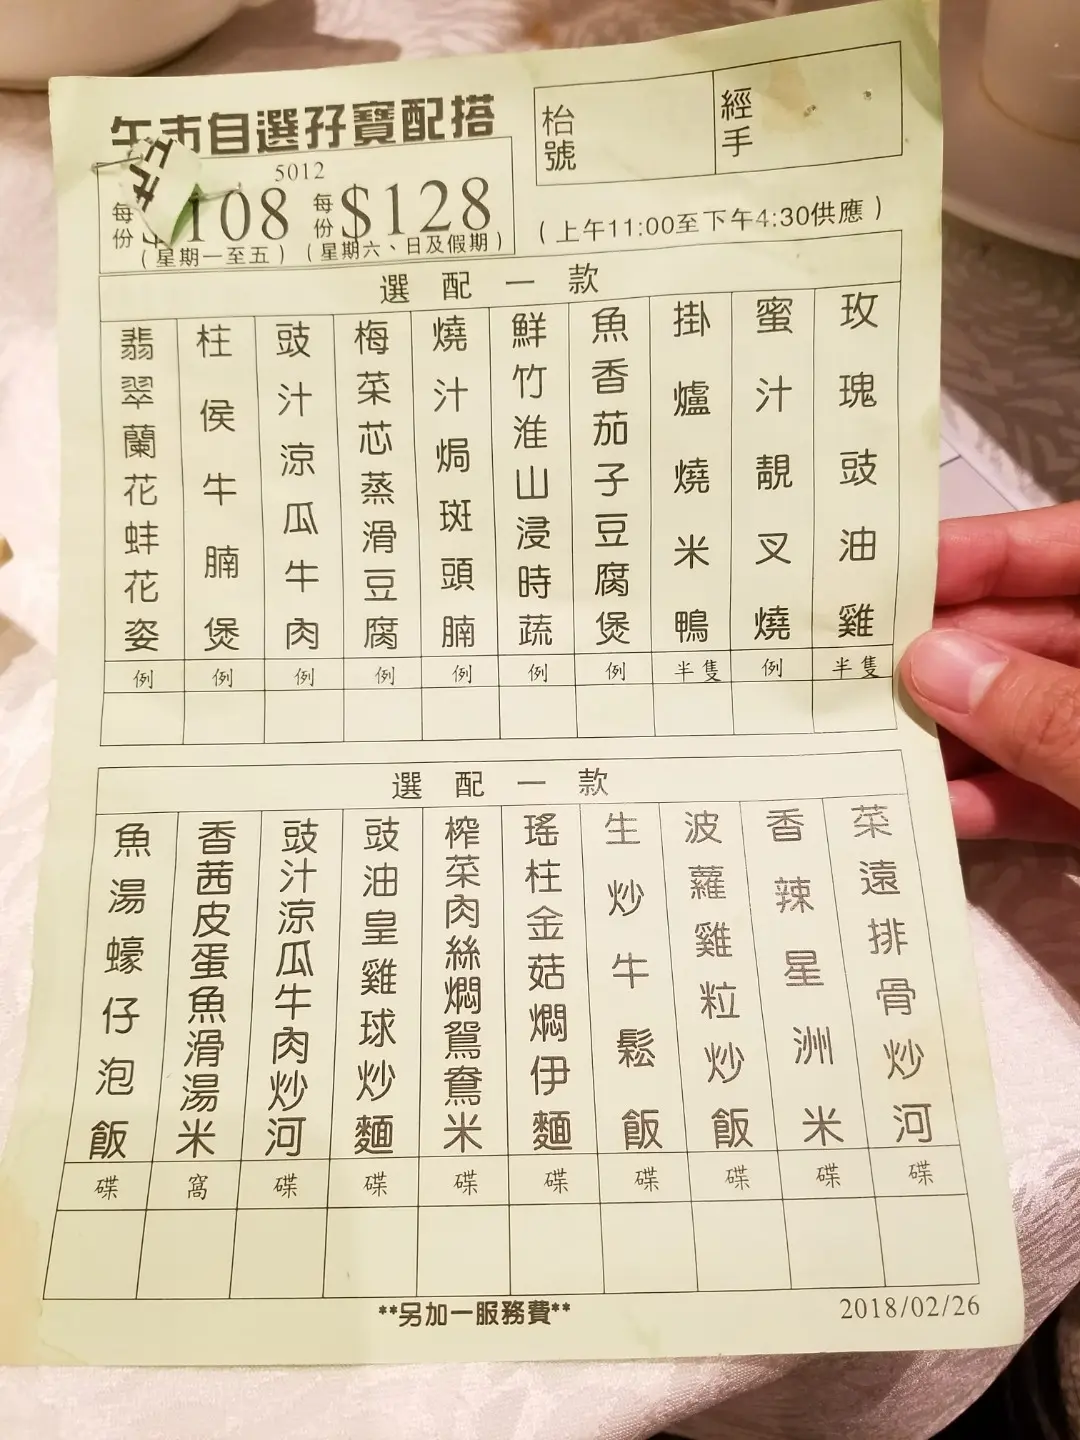 午市自選孖寶配搭
枱號
經手
5012
每份 108 每份 $128
(星期一至五) (星期六、日及假期)
(上午11:00至下午4:30供應)
選配一款
玫瑰豉油雞
半隻
蜜汁靚叉燒
例
掛爐燒米鴨
半隻
魚香茄子豆腐煲
例
鮮竹淮山浸時蔬
例
燒汁焗斑頭腩
例
梅菜芯蒸滑豆腐
例
豉汁涼瓜牛肉
例
柱侯牛腩煲
例
翡翠蘭花蚌花姿
例
選配一款
菜遠排骨炒河
碟
香辣星洲米
碟
波蘿雞粒炒飯
碟
生炒牛鬆飯
碟
瑤柱金菇燜伊麵
碟
榨菜肉絲燜鴛鴦米
碟
豉油皇雞球炒麵
碟
豉汁涼瓜牛肉炒河
碟
香茜皮蛋魚滑湯米
窩
魚湯蠔仔泡飯
碟
**另加一服務費**
2018/02/26